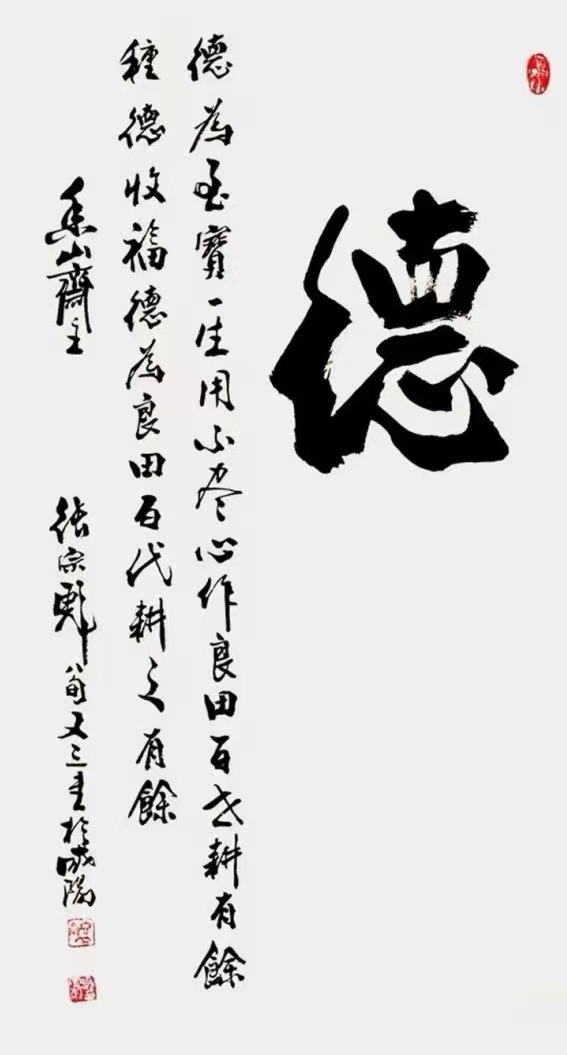 德
德為至寶一生用不尽心作良田百世耕有餘
種德收福德為良田百代耕之有餘
香山齋主
張宗彪八旬又三書於咸陽